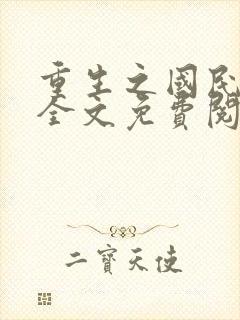 重生之國民
全文免費閱
二寶天使